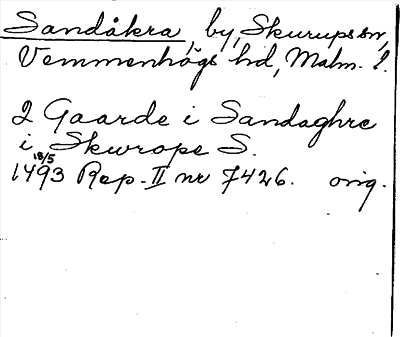 Sandåkra, by, Skurups sn,
Vemmenhögs hd, Malm. l.
2 Gaarde i Sandaghre
i Skurope S.
18/5
1493 Rep. II nr 7426. orig.